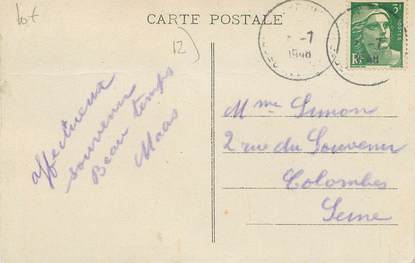 lot
CARTE POSTALE
12
7
1948
3F
affectueux
souvenir
Beau temps
Maas
Mme Simon
2 rue du Souvenir
Colombes
Seine